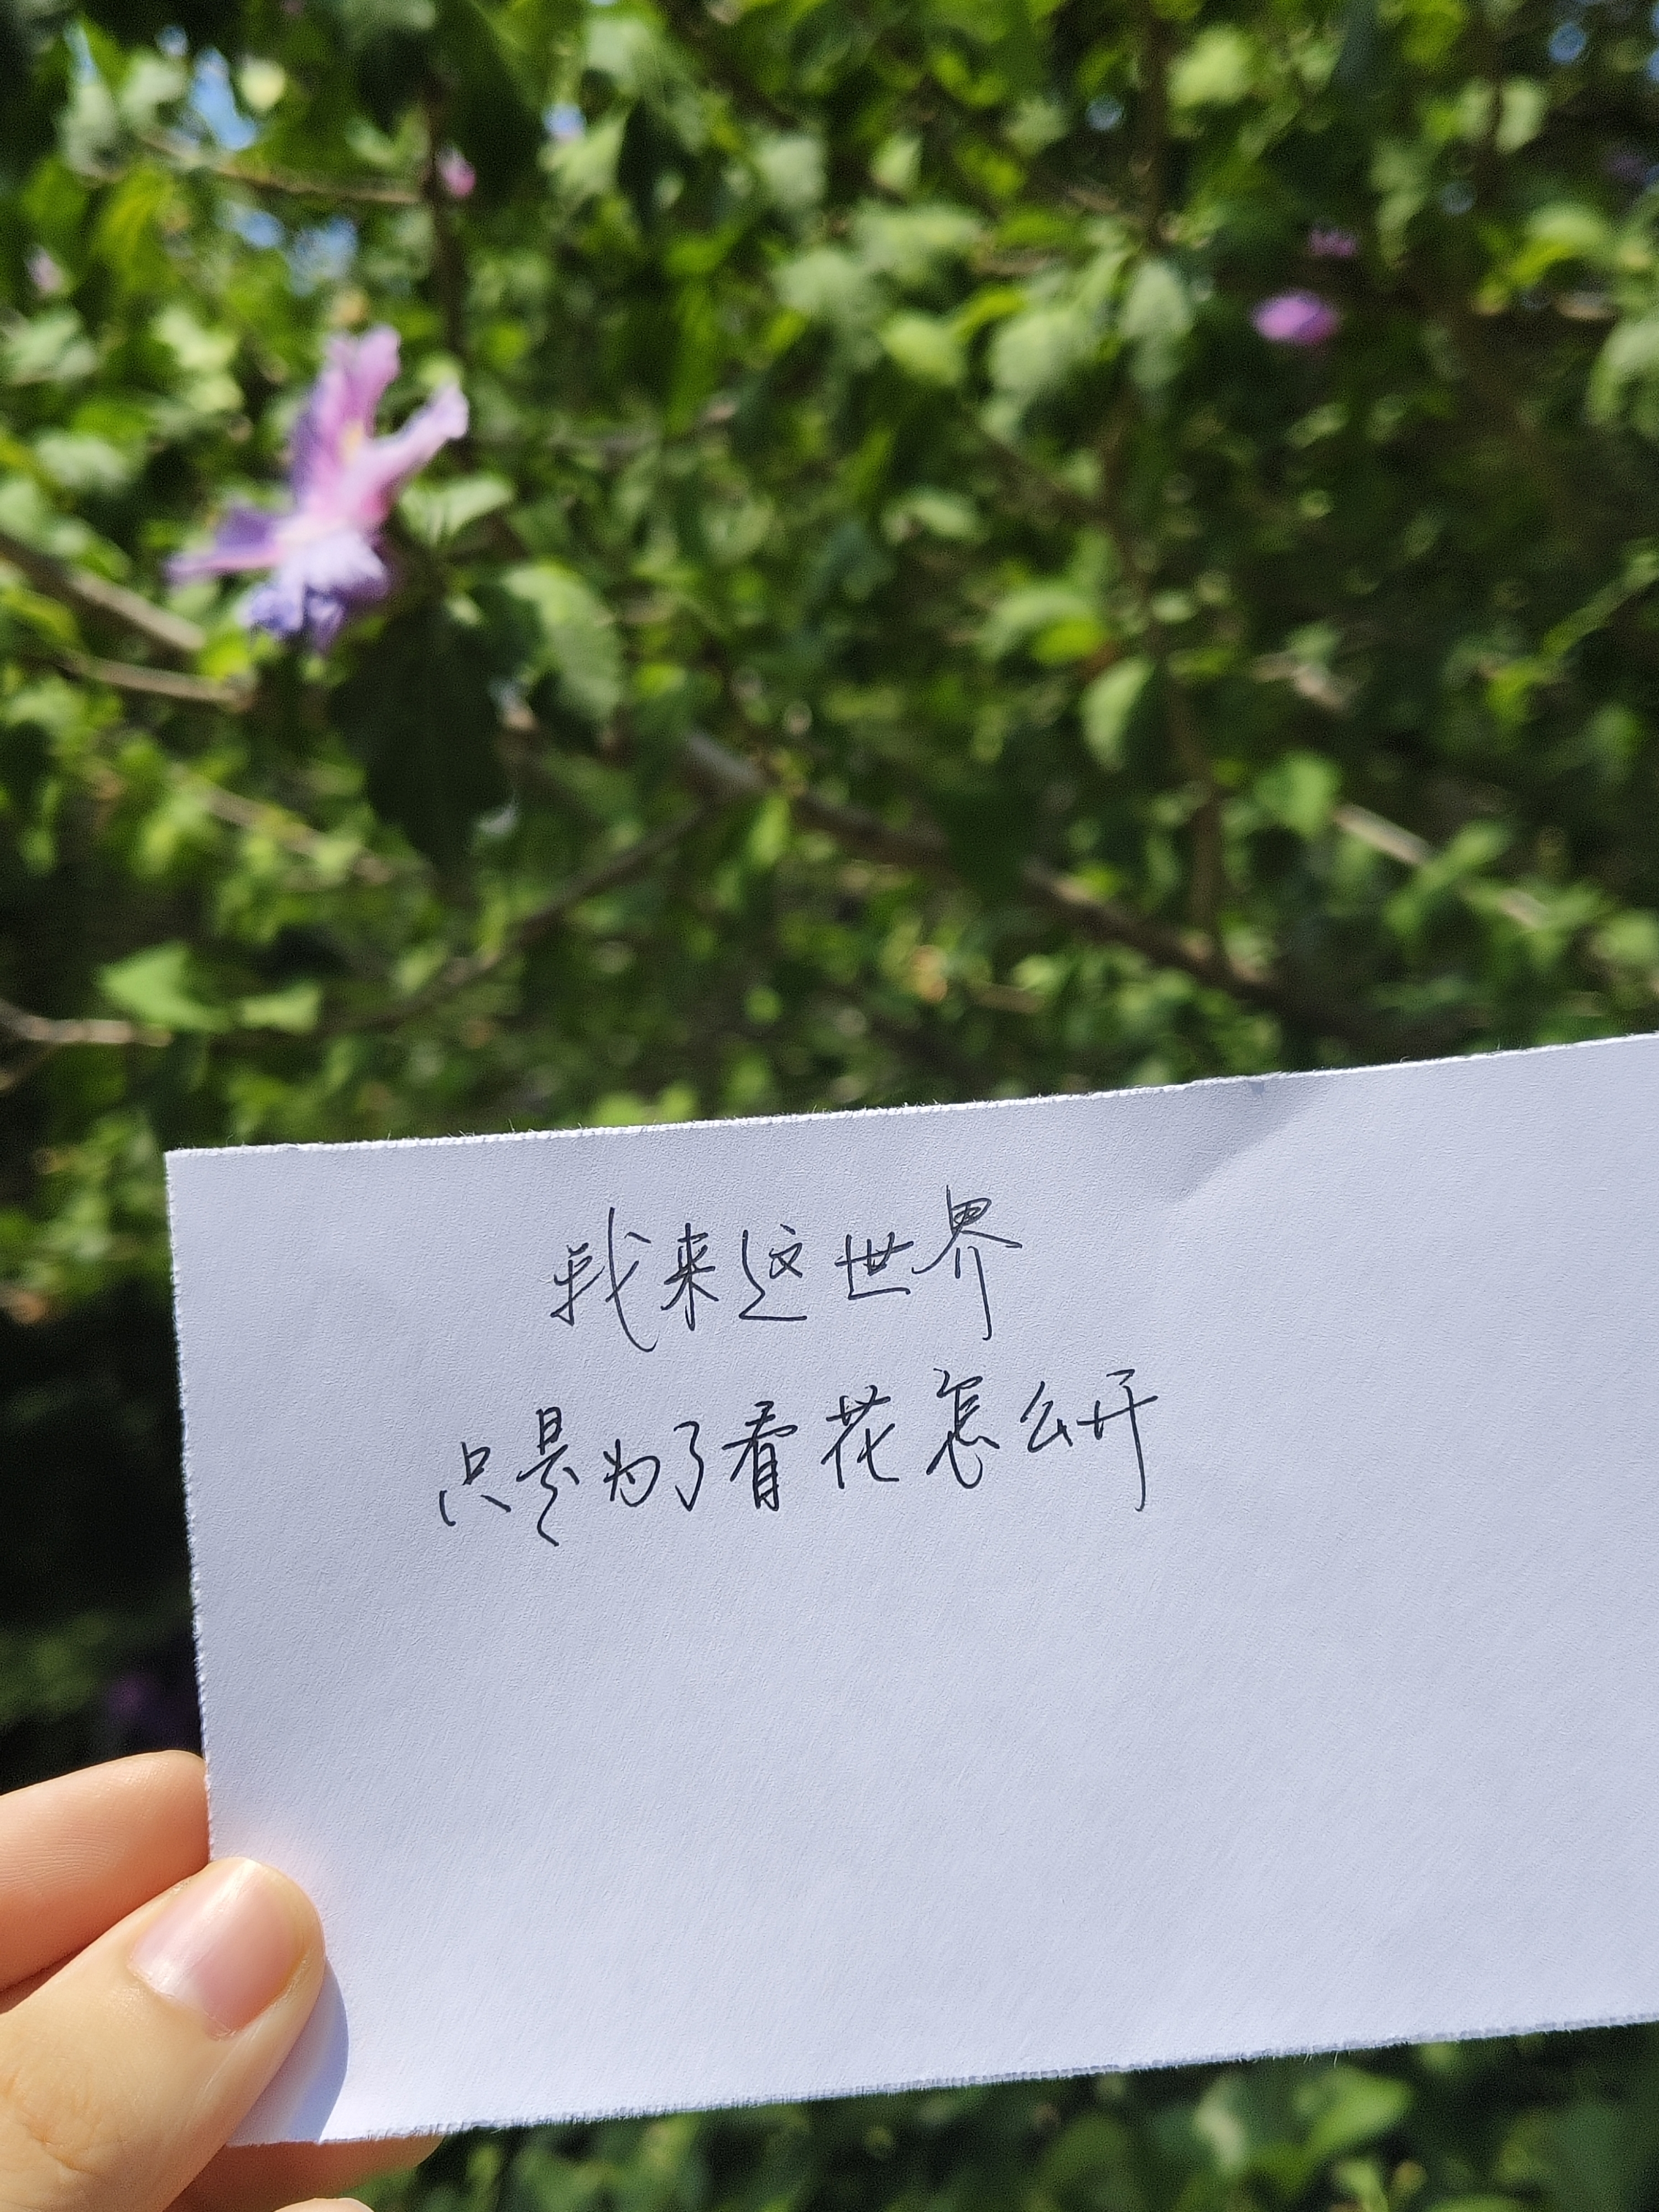 我来这世界
只是为了看花怎么开